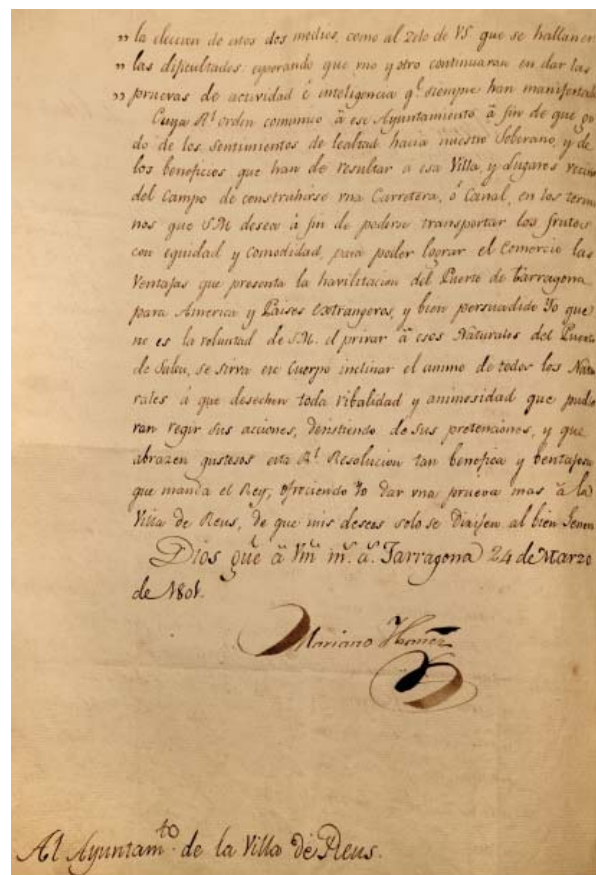 " la eleccion de estos dos medios, como al Zelo de VS. que se hallanen
" las dificultades: esperando que vno y otro continuaran en dar las
" pruevas de actividad è inteligencia q.e siempre han manifestado
Cuya R.l orden comunico â ese Ayuntamiento â fin de que
do de los sentimientos de lealtad hacia nuestro Soberano, y de
los beneficios que han de resultar a esa Villa, y Lugares vecin
del Campo de construhirse vna Carretera, ô Canal, en los termi
nos que S.M. desea â fin de poderse transportar los frutos
con equidad y comodidad, para poder lograr el Comercio las
Ventajas que presenta la havilitacion del Puerto de Tarragona
para America y Paises extrangeros, y bien persuadido Yo que
no es la voluntad de S.M. el privar â esos Naturales del Puerto
de Salou, se sirva ese Cuerpo inclinar el animo de todos los Natu
rales á que desechen toda ribalidad y animosidad que pudie
ran regir sus acciones, desistiendo de sus pretenciones, y que
abrazen gustosos esta R.l Resolucion tan benefica y bentajosa
que manda el Rey, ofreciendo Yo dar vna prueva mas â la
Villa de Reus, de que mis deseos solo se dirijen al bien Gener
Dios gue â Vm m.s a.s Tarragona 24 de Marzo
de 1801.
Mariano Ybañez
Al Ayuntam.to de la Villa de Reus.